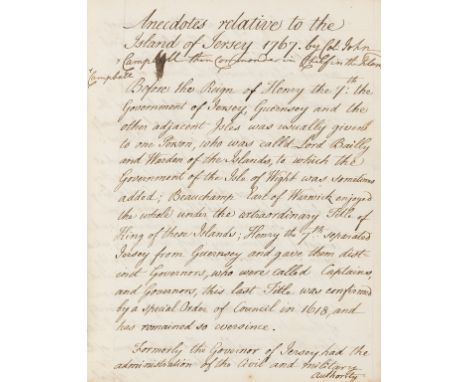 Anecdotes relative to the
Island of Jersey 1767. by Col. John
Campbell then Commander in Chief in the Island
Campbell
Before the Reign of Henry the 7th. the
Government of Jersey, Guernsey and the
other adjacent Isles was usually given
to one Person, who was call'd Lord Bailly
and Warden of the Islands, to which the
Government of the Isle of Wight was sometimes
added; Beauchamp Earl of Warwick enjoyed
the whole under the extraordinary Title of
King of these Islands; Henry the 7th. separated
Jersey from Guernsey and gave them dist-
inct Governors, who were called Captains,
and Governors, this last Title was confirmed
by a special Order of Council in 1618, and
has remained so ever since.
Formerly the Governor of Jersey had the
administration of the Civil and military
Authority